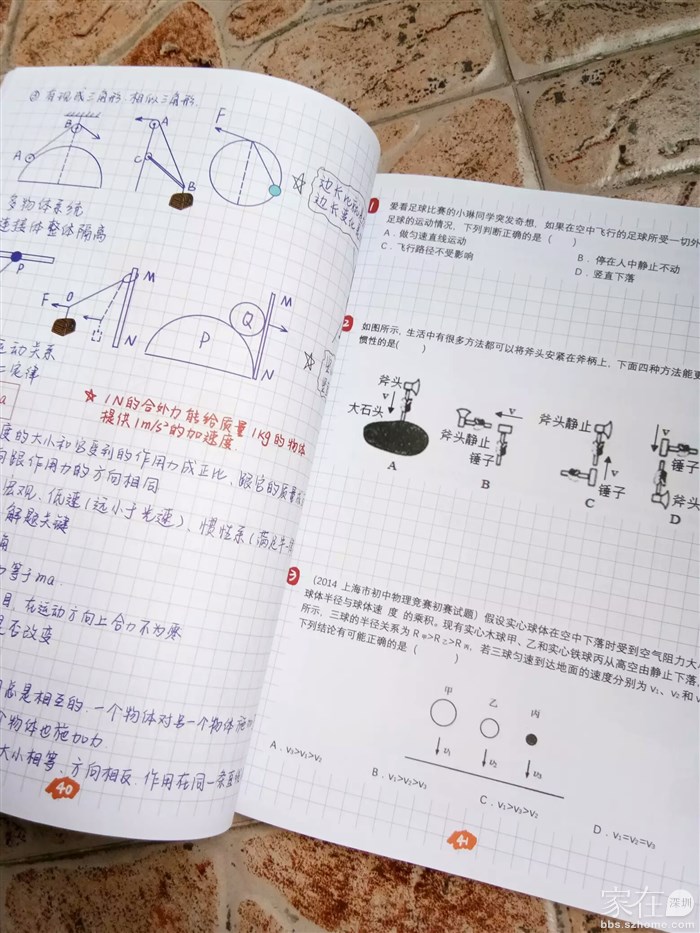 ② 有现成三角形.相似三角形.
B
A
A
C
B
F
边长
边长变化
多物体系统
连接体整体隔离
P
F
O
M
N
P
Q
M
N
互动关系
二定律
a
☆ 1N的合外力能给质量1kg的物体
提供1m/s²的加速度.
度的大小和它受到的作用力成正比、跟它的质量成
向跟作用力的方向相同
宏观、低速(远小于光速)、惯性系(满足牛一
解题关键
角
力等于ma.
目.在运动方向上合力不为零
是否改变
总是相互的.一个物体对另一个物体施加
个物体也施加力
大小相等、方向相反.作用在同一条直线
40
1
爱看足球比赛的小琳同学突发奇想,如果在空中飞行的足球所受一切外
足球的运动情况,下列判断正确的是( )
A.做匀速直线运动
B.停在人中静止不动
C.飞行路径不受影响
D.竖直下落
2
如图所示,生活中有很多方法都可以将斧头安紧在斧柄上,下面四种方法能更
惯性的是( )
斧头
大石头
A
斧头静止
v
锤子
B
斧头静止
v
锤子
C
v
锤子
斧头
D
3
(2014 上海市初中物理竞赛初赛试题)假设实心球体在空中下落时受到空气阻力大
球体半径与球体速 度 的乘积。现有实心木球甲、乙和实心铁球丙从高空由静止下落,
所示,三球的半径关系为 R甲>R乙>R丙,若三球匀速到达地面的速度分别为 v₁、v₂ 和 v
下列结论有可能正确的是( )
甲
乙
丙
υ₁
υ₂
υ₃
A.v₃>v₁>v₂
B.v₁>v₂>v₃
C.v₁>v₃>v₂
D.v₁=v₂=v₃
41
家在深圳
bbs.szhome.com